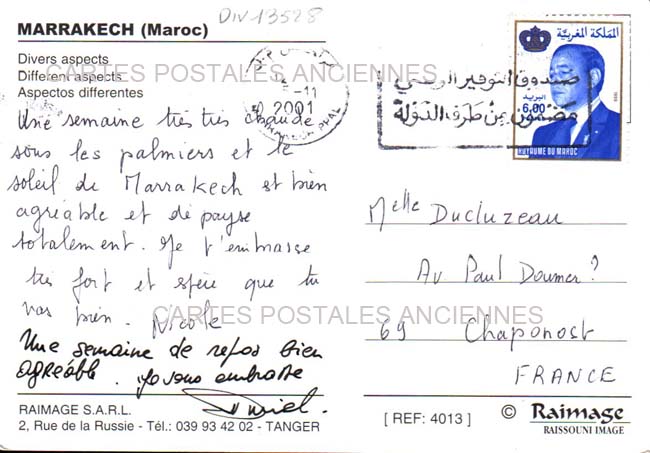 DIV13528
MARRAKECH (Maroc)
Divers aspects
Different aspects
Aspectos differentes
CARTES POSTALES ANCIENNES
2001
المملكة المغربية
صندوق التوفير الوطني
مضمون من طرف الدولة
البريد
6,00
ROYAUME DU MAROC
Une semaine très très chaude
sous les palmiers et le
soleil de Marrakech est bien
agréable et dépayse
totalement. Je t'embrasse
très fort et espère que tu
vas bien. Nicole
CARTES POSTALES ANCIENNES
Une semaine de repos bien
agréable. je vous embrasse
Melle Ducluzeau
Av Paul Doumer?
69 Chaponost
FRANCE
RAIMAGE S.A.R.L.
2, Rue de la Russie - Tél.: 039 93 42 02 - TANGER
[ REF: 4013 ]
© Raimage
RAISSOUNI IMAGE